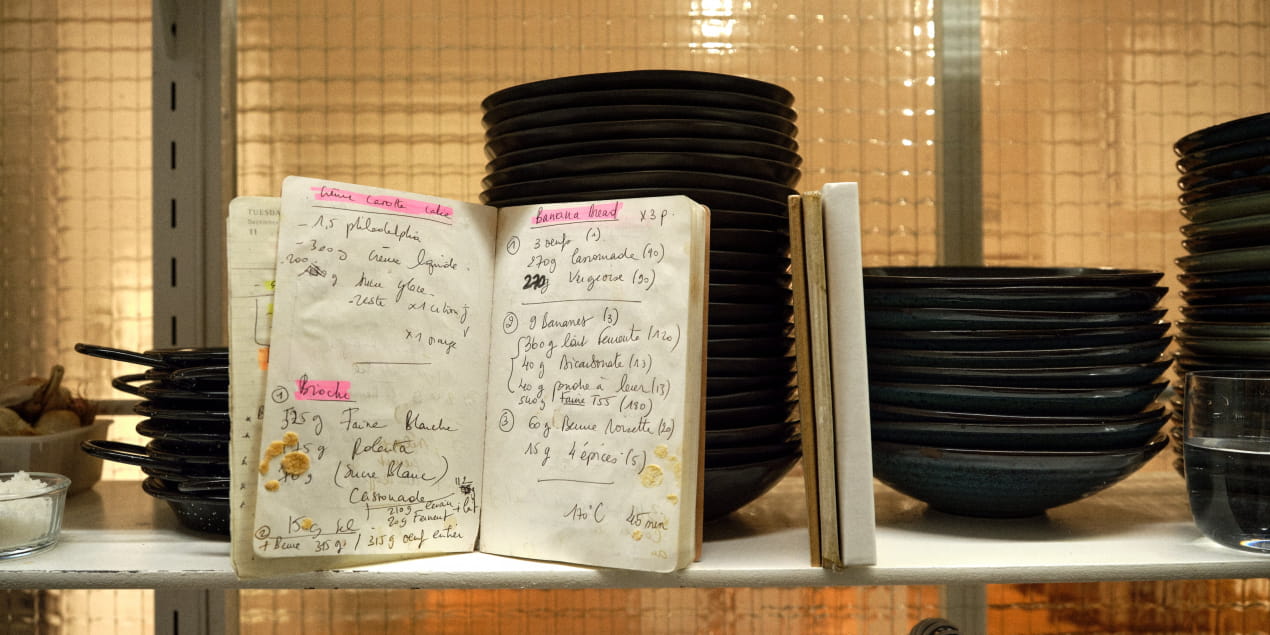 TUESDAY
September
11
Crème Carotte Cake
- 1,5 philadelphia
- 300 g crème liquide.
200 g sucre glace
- zeste x1 citron j
x1 orange
① Brioche
325 g Farine Blanche
125 g Polenta
70 g (Sucre Blanc)
Cassonade
210g levain + lait
20g Ferment
② 15 g sel
+ Beurre 375 g / 315 g oeuf entier
Banana Bread x3 p.
① 3 oeufs (1)
270g Cassonade (90)
270g Vergeoise (90)
② 9 Bananes (3)
360 g lait Fermenté (120)
40 g Bicarbonate (13)
40 g poudre à lever (13)
540g Farine T55 (180)
③ 60 g Beurre Noisette (20)
15 g 4 épices (5)
170°C 45 min